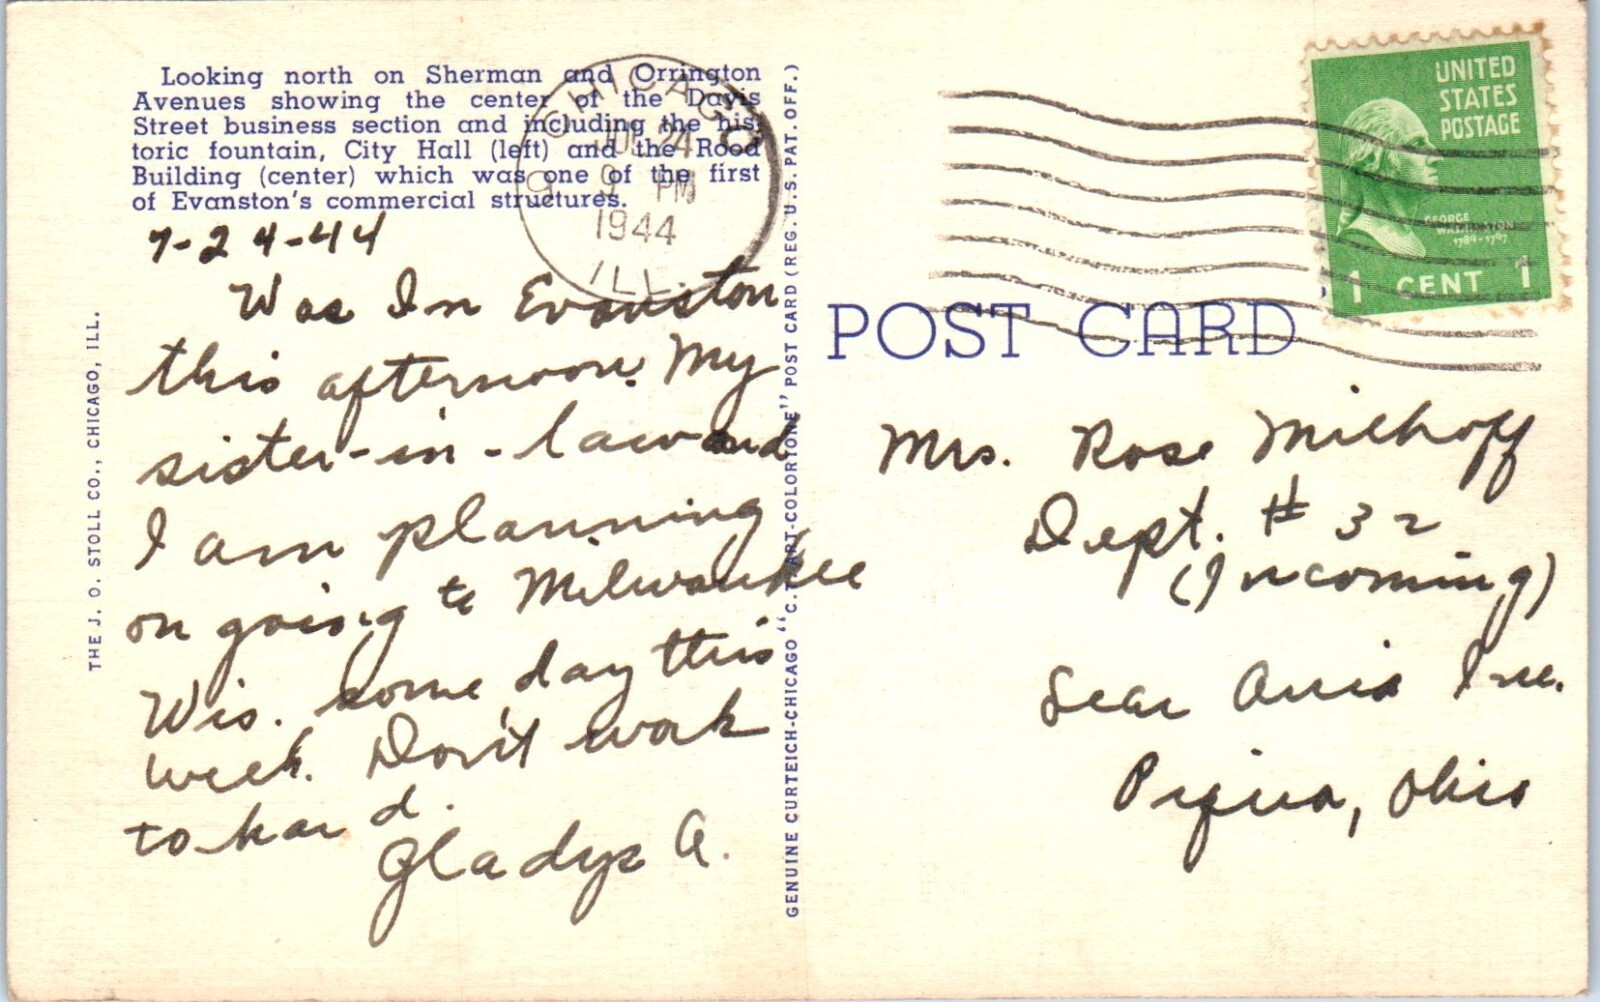 Looking north on Sherman and Orrington
Avenues showing the center of the Davis
Street business section and including the his-
toric fountain, City Hall (left) and the Rood
Building (center) which was one of the first
of Evanston's commercial structures.
CHICAGO
JUL 24
9 PM
1944
ILL.
7-24-44
Was In Evanston
this afternoon. My
sister-in-law and
I am planning
on going to Milwaukee
Wis. some day this
week. Don't work
to hard.
Gladys A.
THE J. O. STOLL CO., CHICAGO, ILL.
GENUINE CURTEICH-CHICAGO "C. T. ART-COLORTONE" POST CARD (REG. U.S. PAT. OFF.)
UNITED
STATES
POSTAGE
GEORGE
WASHINGTON
1789-1797
1 CENT 1
POST CARD
Mrs. Rose Milhoff
Dept. # 32
(Incoming)
Lear Avia Inc.
Piqua, Ohio